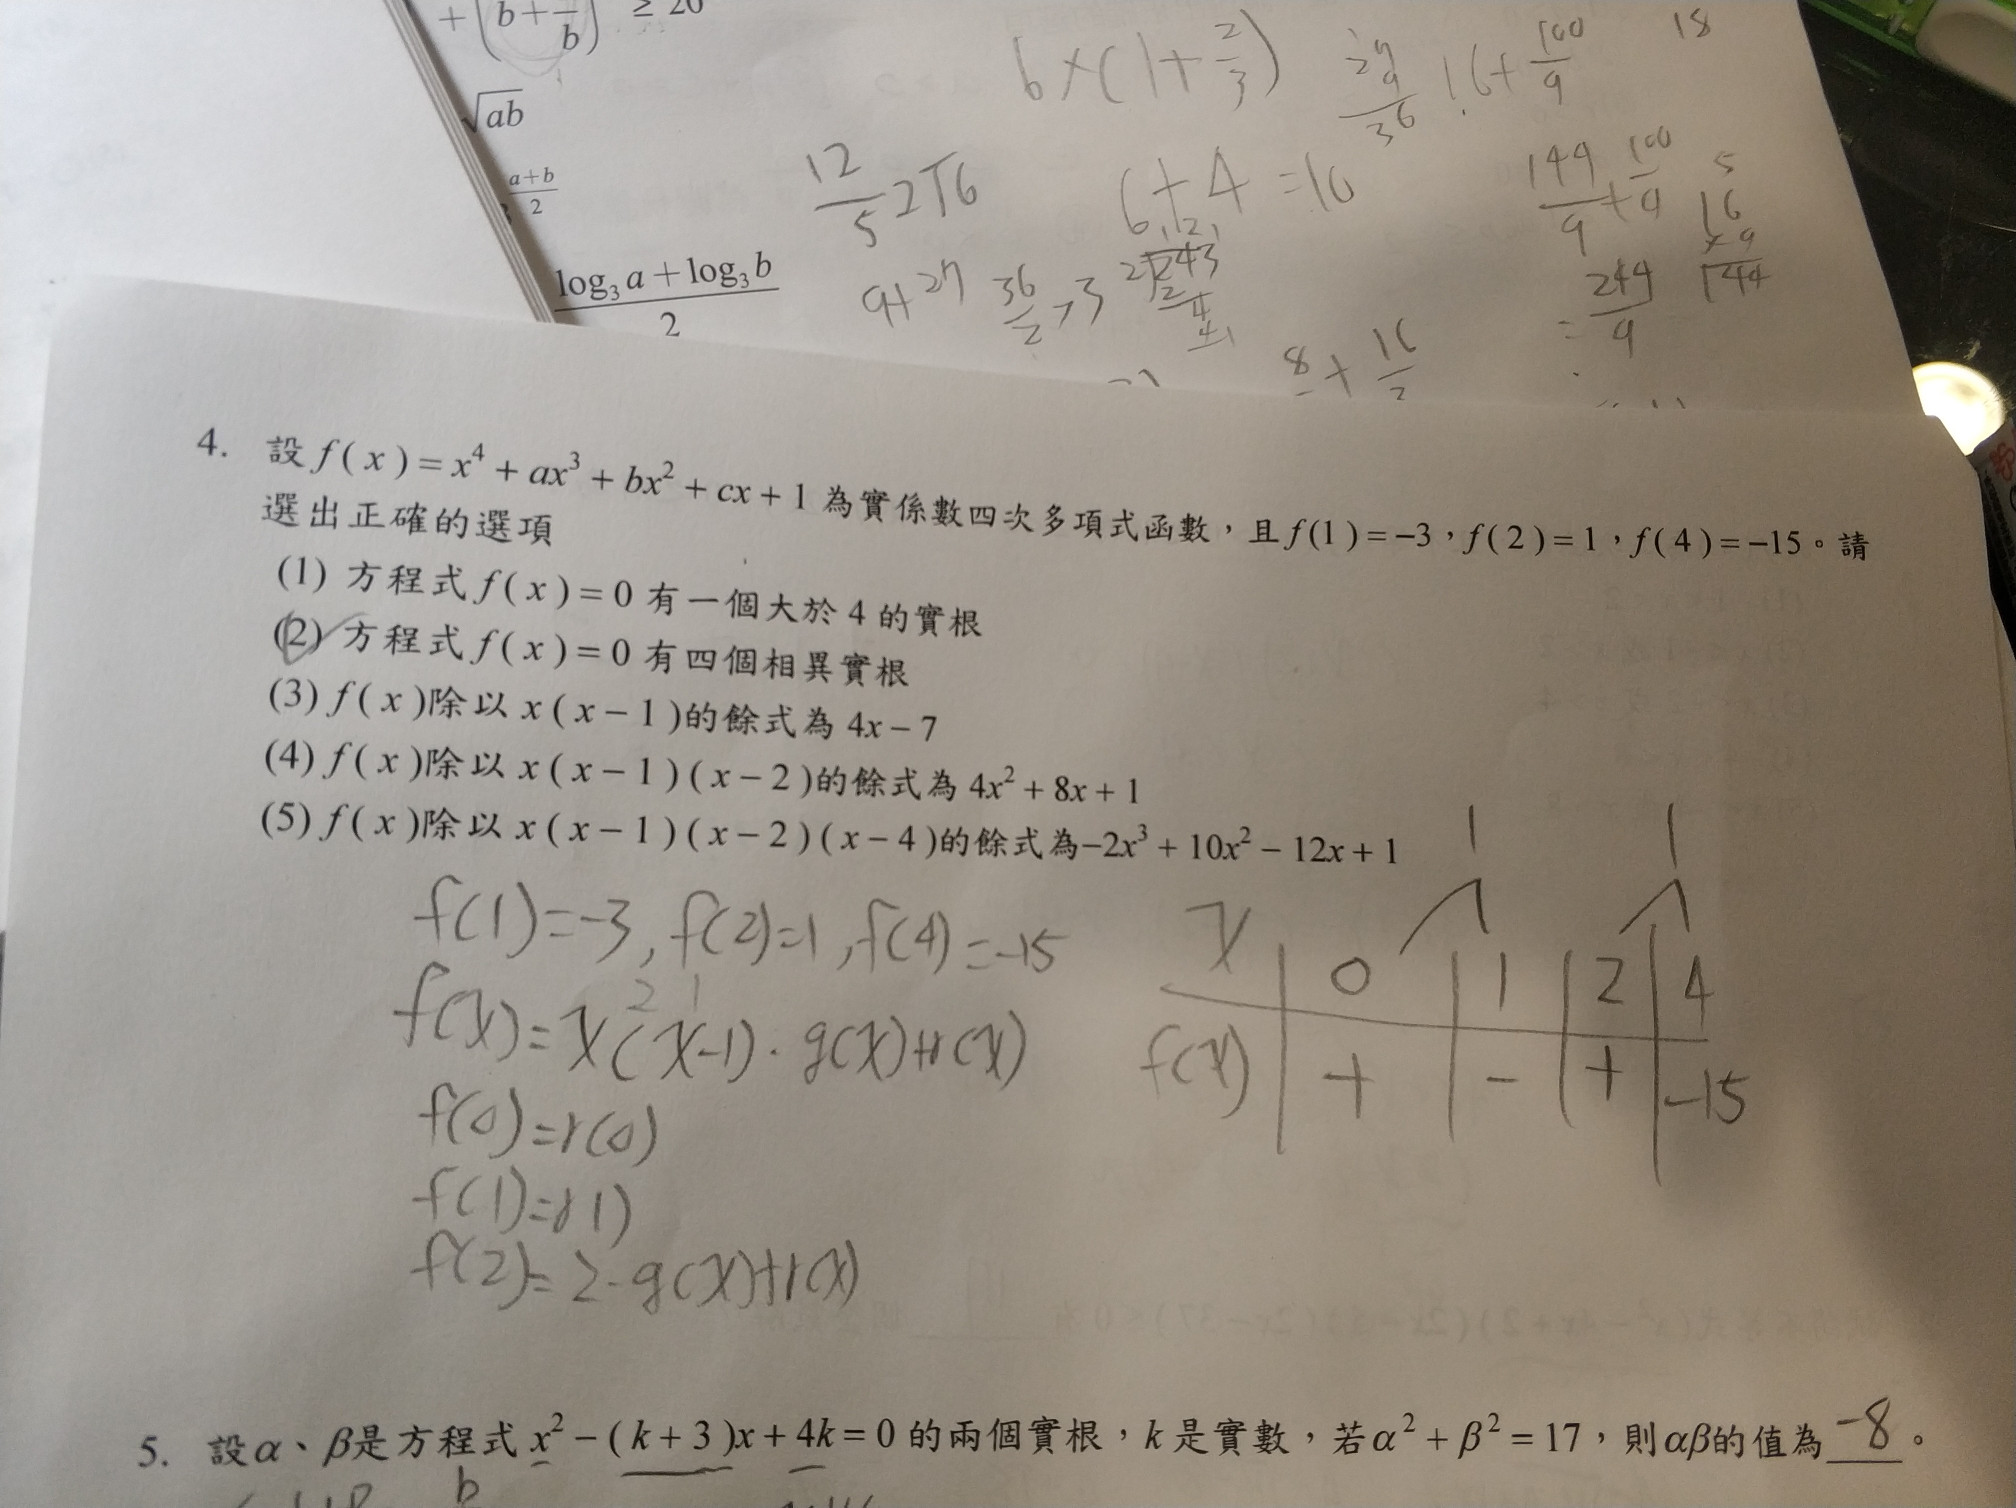 + (b + 1/b) ≥ 20
√ab
a+b/2
log₃a + log₃b / 2
6×(1+2/3)
16+100/9
18
12/5 2√6
6+4=10
149/9+100/9
5
16
×9
144
=249/9
9+27 36/2 >3
243
8+16/2
4. 設 f(x)=x⁴+ax³+bx²+cx+1 為實係數四次多項式函數，且 f(1)=−3，f(2)=1，f(4)=−15。請
選出正確的選項
(1) 方程式 f(x)=0 有一個大於 4 的實根
(2) 方程式 f(x)=0 有四個相異實根
(3) f(x)除以 x(x−1)的餘式為 4x−7
(4) f(x)除以 x(x−1)(x−2)的餘式為 4x²+8x+1
(5) f(x)除以 x(x−1)(x−2)(x−4)的餘式為−2x³+10x²−12x+1
1 1
f(1)=-3, f(2)=1, f(4)=-15
x 0 1 2 4
2 1
f(x)=x(x-1)·g(x)+r(x)
f(x) + - + -15
f(0)=r(0)
f(1)=r1)
f(2)=2·g(x)+r(x)
5. 設α、β是方程式 x²−(k+3)x+4k=0 的兩個實根，k 是實數，若α²+β²=17，則αβ的值為 -8 。
b